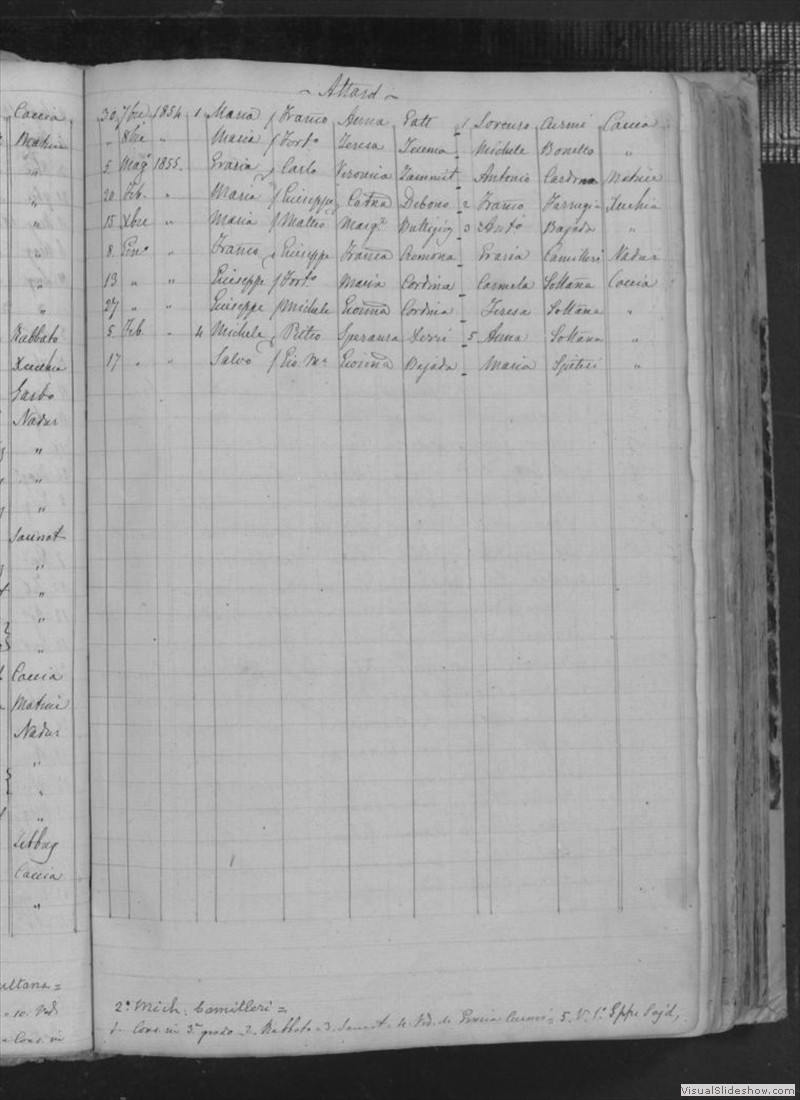 Caccia
Matrice
"
"
"
"
"
"
Rabbato
Xeuchia
Garbo
Nadur
"
"
"
Sannat
"
"
"
"
Caccia
Matrice
Nadur
"
"
"
Zebbug
Caccia
"
ultana =
~ Attard ~
30 7bre 1854 1 Maria Franco Anna Vatt 1 Lorenzo Curmi Caccia
" Xbre " Maria Forto Teresa Michele Bonello "
5 Mag° 1855 Grazia Carlo Veronica Zammit Antonio Cardona Matrice
20 Feb. " Maria Giuseppe Catna Debono 2 Franco Farrugia Xeuchia
15 Xbre " Maria Matteo Marga Buttigieg 3 Anto Bajada "
8 Gen° " Franco Giuseppe Franca Cremona Grazia Camilleri Nadur
13 " " Giuseppe Forto Maria Cordina Carmela Soltana Caccia
27 " " Giuseppe Michele Giovna Cordina Teresa Soltana "
5 Feb. " 4 Michele Pietro Speranza Xerri 5 Anna Soltana "
17 " " Salvo Gio. Ma Giovna Bajada Maria Spiteri "
2° Mich. Camilleri =
1. Cons. in 3° grado - 2. Rabbato - 3. Sannat - 4. Vd. de Grazia Curmi - 5. V. Gppe Sajd,
VisualSlideshow.com